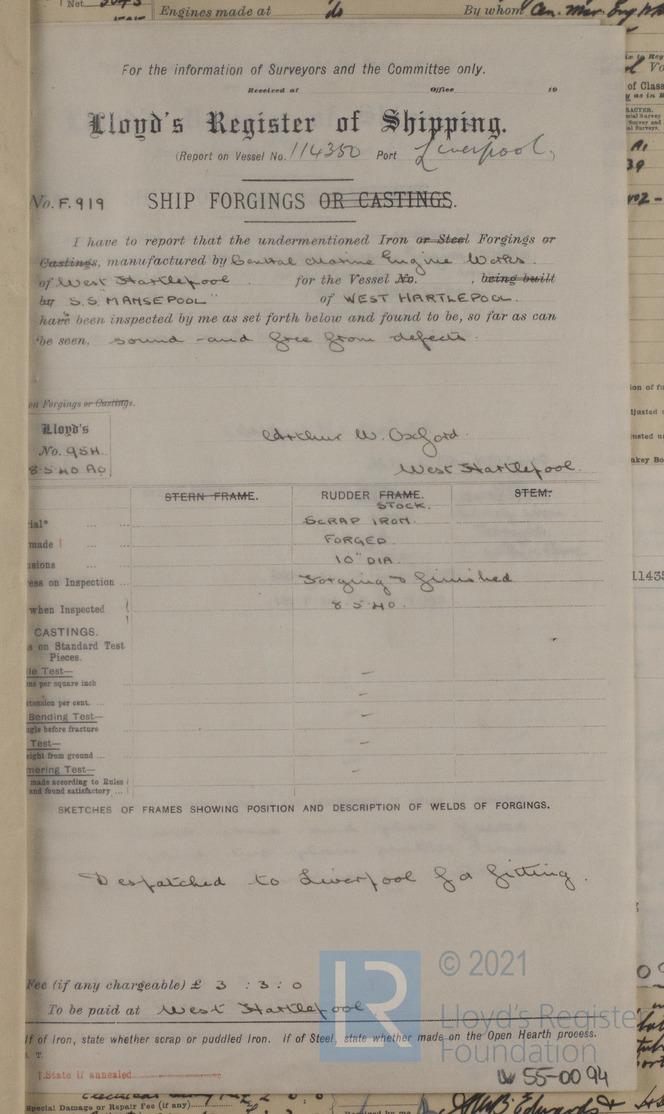 Not 5043
Engines made at do By whom Cen. Mar. Eng Wks
For the information of Surveyors and the Committee only.
Received at Office 19
Lloyd's Register of Shipping.
(Report on Vessel No. 114350 Port Liverpool,
No. F.919 SHIP FORGINGS OR CASTINGS.
I have to report that the undermentioned Iron or Steel Forgings or
Castings, manufactured by Central Marine Engine Works.
of West Hartlepool. for the Vessel No. , being built
by S.S. "MANSEPOOL" of WEST HARTLEPOOL.
have been inspected by me as set forth below and found to be, so far as can
be seen, sound and free from defects.
on Forgings or Castings.
Lloyd's
No. 954
8.5.40 AO
Arthur W. Oxford.
West Hartlepool.
STERN FRAME. RUDDER FRAME. STEM.
STOCK.
ial* SCRAP IRON.
made † FORGED.
sions 10" DIA.
ess on Inspection Forging & finished
when Inspected 8.5.40.
CASTINGS.
s on Standard Test
Pieces.
le Test— –
ns per square inch
xtension per cent. –
Bending Test— –
ngle before fracture
Test— –
eight from ground
mering Test— –
made according to Rules
and found satisfactory
SKETCHES OF FRAMES SHOWING POSITION AND DESCRIPTION OF WELDS OF FORGINGS.
Despatched to Liverpool for fitting.
Fee (if any chargeable) £ 3 : 3 : 0
To be paid at West Hartlepool
If of Iron, state whether scrap or puddled Iron. If of Steel, state whether made on the Open Hearth process.
† State if annealed
LR © 2021
Lloyd's Register
Foundation
W 55-0094
Special Damage or Repair Fee (if any)